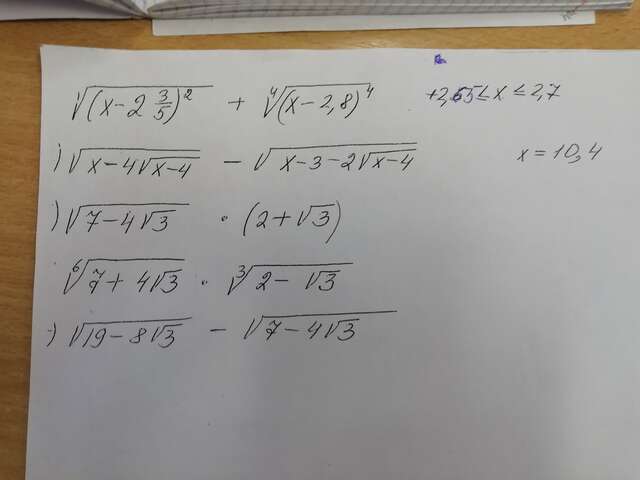 √(x - 2 3/5)² + ⁴√(x - 2,8)⁴ +2,65 ≤ x ≤ 2,7
) √(x - 4√(x - 4)) - √(x - 3 - 2√(x - 4)) x = 10,4
) √(7 - 4√3) · (2 + √3)
⁶√(7 + 4√3) · ³√(2 - √3)
) √(19 - 8√3) - √(7 - 4√3)